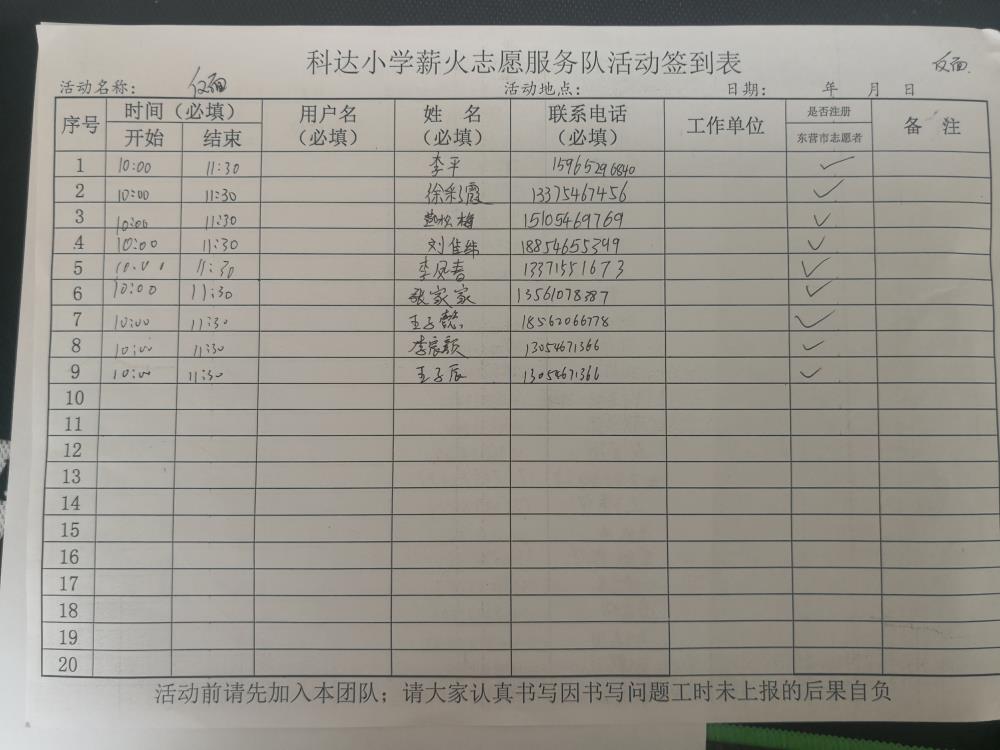 科达小学薪火志愿服务队活动签到表
反面
活动名称： 反面 活动地点： 日期： 年 月 日
序号 时间（必填） 用户名（必填） 姓 名（必填） 联系电话（必填） 工作单位 是否注册 备 注
开始 结束 东营市志愿者
1 10:00 11:30 李平 15965296840 ✓
2 10:00 11:30 徐彩霞 13375467456 ✓
3 10:00 11:30 梅 15105469769 ✓
4 10:00 11:30 刘佳纬 18854655349 ✓
5 10:00 11:30 李凤春 13371551673 ✓
6 10:00 11:30 张家家 13561078387 ✓
7 10:00 11:30 王子懿 18562066778 ✓
8 10:00 11:30 李宸颢 13054671366 ✓
9 10:00 11:30 王子辰 13054671366 ✓
10
11
12
13
14
15
16
17
18
19
20
活动前请先加入本团队；请大家认真书写因书写问题工时未上报的后果自负